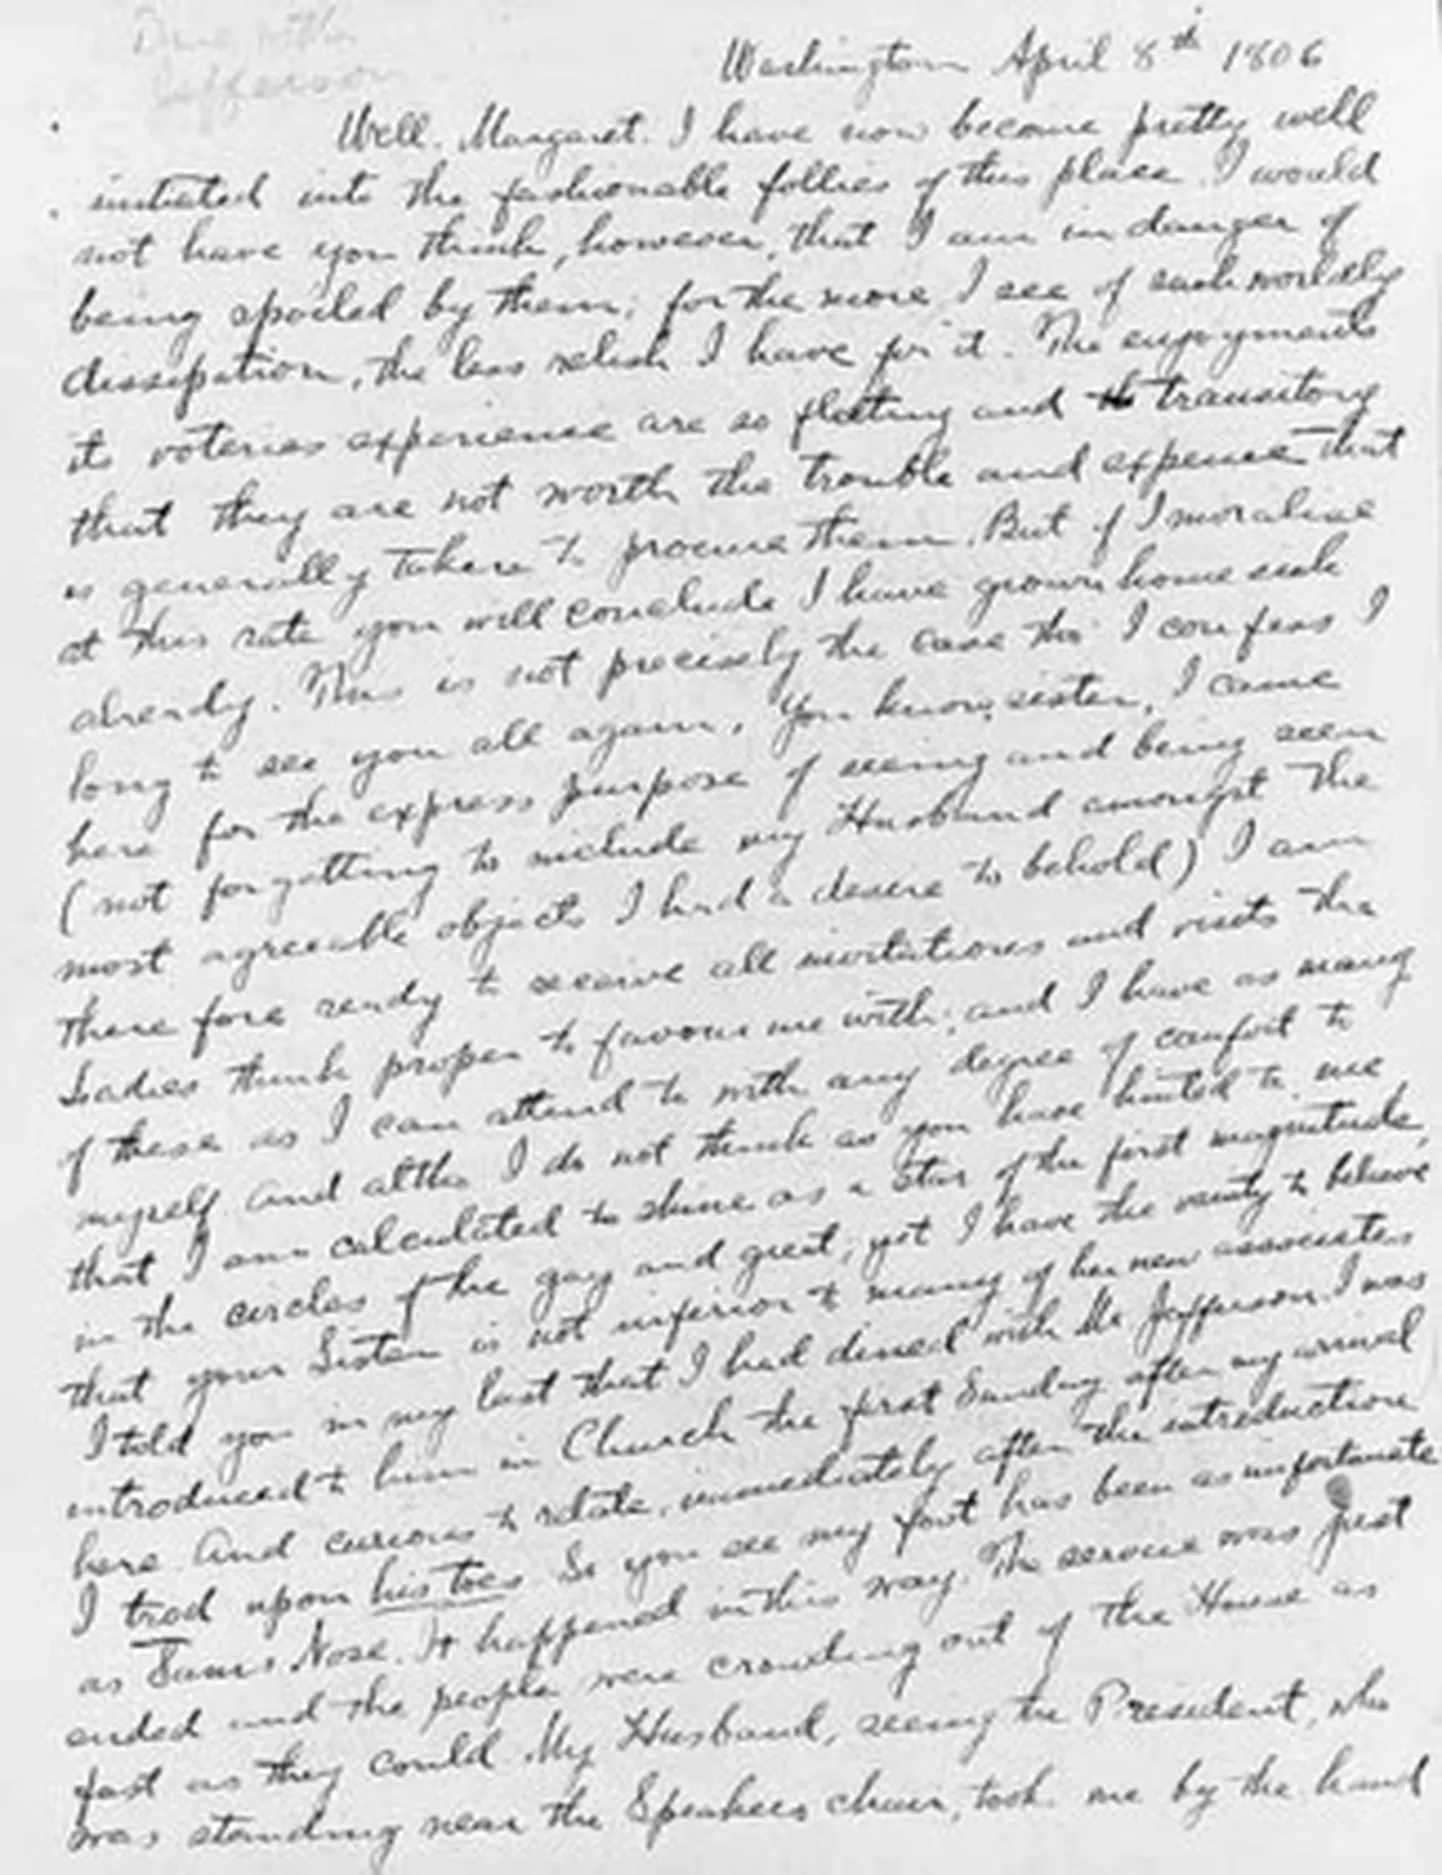 Dine with
Jefferson
Washington April 8th 1806
Well. Margaret. I have now become pretty well
initiated into the fashionable follies of this place. I would
not have you think, however, that I am in danger of
being spoiled by them; for the more I see of such worldly
dissipation, the less relish I have for it. The enjoyments
its voteries experience are so fleeting and transitory
that they are not worth the trouble and expense that
is generally taken to procure them. But if I moralise
at this rate you will conclude I have grown home sick
already. This is not precisely the case tho' I confess I
long to see you all again. You know, sister, I came
here for the express purpose of seeing and being seen
(not forgetting to include my Husband amongst the
most agreeable objects I had a desire to behold) I am
there fore ready to receive all invitations and visits the
Ladies think proper to favour me with; and I have as many
of these as I can attend to with any degree of comfort to
myself. And altho I do not think as you have hinted to me
that I am calculated to shine as a Star of the first magnitude,
in the circles of the gay and great, yet I have the vanity to believe
that your Sister is not inferior to many of her new associates
I told you in my last that I had dined with Mr Jefferson. I was
introduced to him in Church the first Sunday after my arrival
here. And curious to relate, immediately after the introduction
I trod upon his toes. So you see my foot has been as unfortunate
as Sam's Nose. It happened in this way. The service was just
ended and the people were crowding out of the House as
fast as they could. My Husband, seeing the President, who
was standing near the Speakers chair, took me by the hand